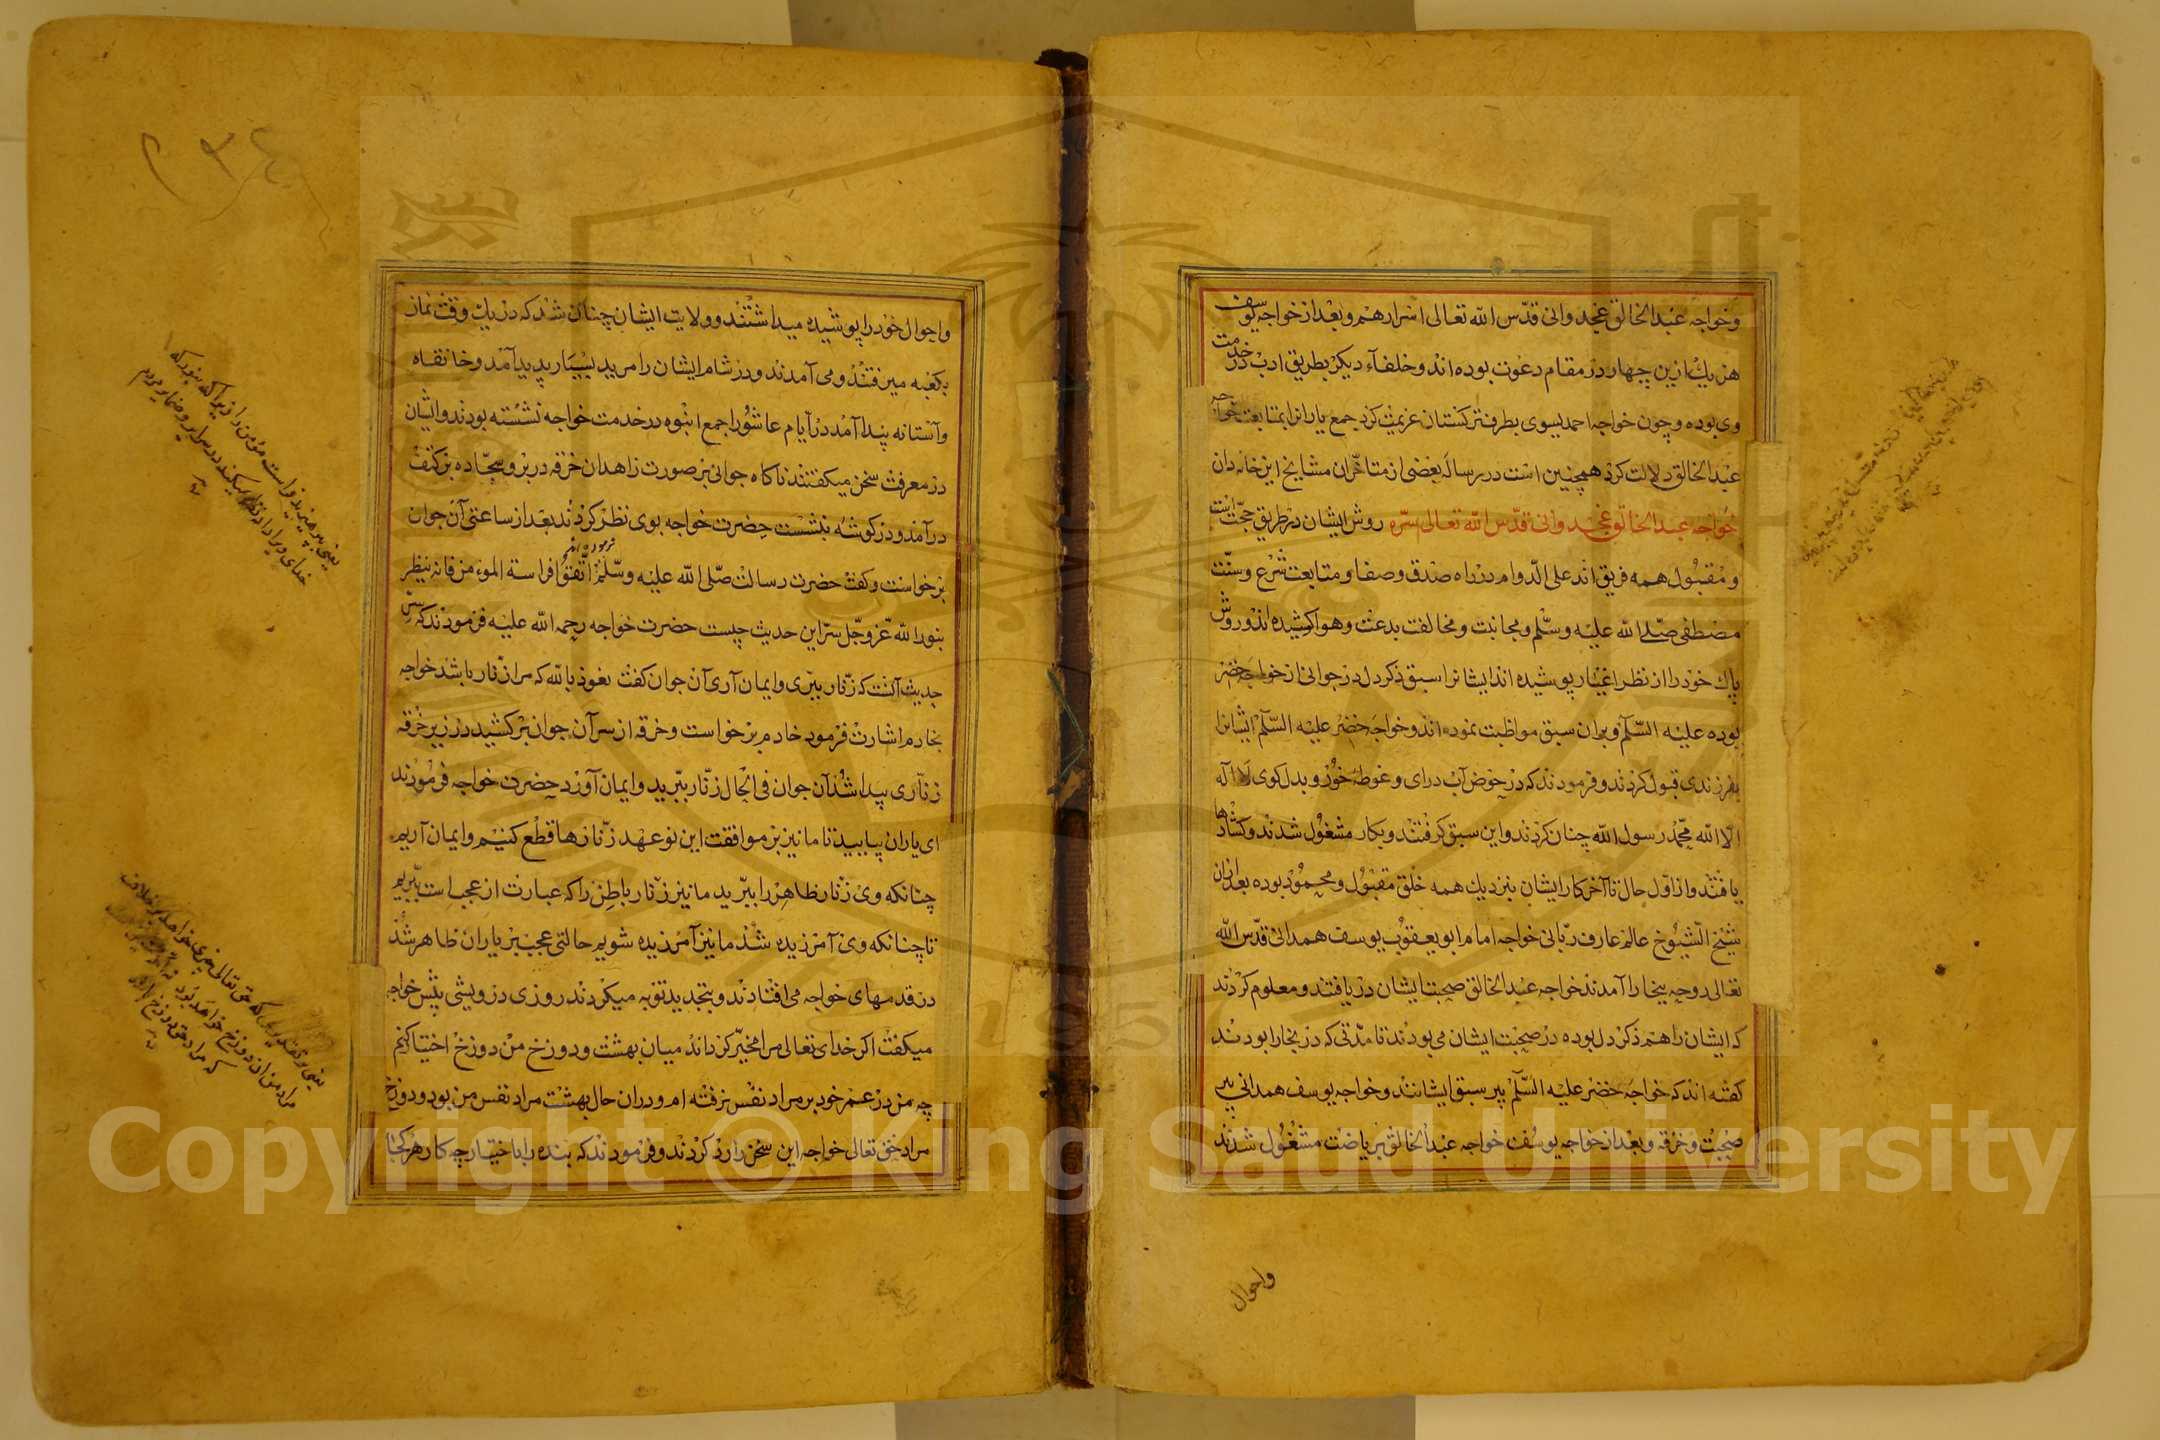 وخواجه عبد الخالق غجدوانی قدّس الله تعالی اسرارهم وبعد از خواجه یوسف
هر یك ازین چهار در مقام دعوت بوده اند وخلفآء دیکر بطریق ادب در خدمت
وی بوده وچون خواجه احمد یسوی بطرف ترکستان عزیمت کرد جمع یارانرا بمتابعت خواجه
عبد الخالق دلالت کرد همچنین است در رسالهٔ بعضی از متاخّران مشایخ این خانه دان
خواجه عبد الخالق غجدوانی قدّس الله تعالی سرّه روش ایشان در طریق حجّت است
ومقبول همه فریق اند علی الدّوام در راه صدق وصفا ومتابعت شرع وسنّت
مصطفی صلّی الله علیه وسلّم ومجانبت ومخالفت بدعت وهوا کوشیده اند وروش
پاك خود را از نظر اغیار پوشیده اند ایشانرا سبق ذکر دل در جوانی از خواجه خضر
بوده علیه السّلام وبران سبق مواظبت نموده اند وخواجه خضر علیه السّلام ایشانرا
بفرزندی قبول کردند وفرمودند که در حوض آب درای وغوطه خور وبدل کوی لا اله
الّا الله محمّد رسول الله چنان کردند واین سبق کرفتند وبکار مشغول شدند وکشادها
یافتند واز اوّل حال تا آخر کار ایشان نزدیك همه خلق مقبول ومحمود بوده بعد ازان
شیخ الشّیوخ عالم عارف ربّانی خواجه امام ابو یعقوب یوسف همدانی قدّس الله
تعالی روحه ببخارا آمدند خواجه عبد الخالق صحبت ایشان دریافتند ومعلوم کردند
که ایشان را هم ذکر دل بوده در صحبت ایشان می بودند تا مدّتی که در بخارا بودند
کفته اند که خواجه خضر علیه السّلام پیر سبق ایشانند وخواجه یوسف همدانی پیر
صحبت وخرقه وبعد از خواجه یوسف خواجه عبد الخالق بریاضت مشغول شدند
واحوال
واحوال خود را پوشیده میداشتند وولایت ایشان چنان شد که در یك وقت نماز
بکعبه میرفتند ومی آمدند ودر شام ایشان را مرید بسیار پدید آمد وخانقاه
وآستانه پیدا آمد در ایام عاشورا جمع انبوه در خدمت خواجه نشسته بودند وایشان
در معرفت سخن میکفتند ناکاه جوانی بر صورت زاهدان خرقه در بر وسجّاده بر کتف
درآمد ودر کوشه بنشست حضرت خواجه بوی نظر کردند بعد از ساعتی آن جوان
برخواست وکفت حضرت رسالت صلّی الله علیه وسلّم فرموده اند اتّقوا فراسة المؤمن فانه ینظر
بنور الله عزّ وجلّ سرّ این حدیث چیست حضرت خواجه رحمه الله علیه فرمودند که سرّ
حدیث آنست که زنّار ببری وایمان آری آن جوان کفت نعوذ بالله که مرا زنّار باشد خواجه
بخادم اشارت فرمود خادم برخواست وخرقه از سر آن جوان برکشید در زیر خرقه
زنّاری پیدا شد آن جوان فی الحال زنّار ببرید وایمان آورد حضرت خواجه فرمودند
ای یاران بیایید تا ما نیز بر موافقت این نو عهد زنّارها قطع کنیم وایمان آریم
چنانکه وی زنّار ظاهر را ببرید ما نیز زنّار باطن را که عبارت از عجب است ببریم
تا چنانکه وی آمرزیده شد ما نیز آمرزیده شویم حالتی عجب بر یاران ظاهر شد
در قدمهای خواجه می افتادند وبتجدید توبه میکردند روزی درویشی پیش خواجه
میکفت اکر خدای تعالی مرا مخیّر کرداند میان بهشت ودوزخ من دوزخ اختیار کنم
چه من در عمر خود بر مراد نفس نرفته ام ودران حال بهشت مراد نفس من بود ودوزخ
مراد حق تعالی خواجه این سخن را رد کردند وفرمودند که بنده را با اختیار چه کار هر کجا
یعنی پرهیزید از فراست مؤمن را زیرا که بنور
Copyright © King Saud University
1957